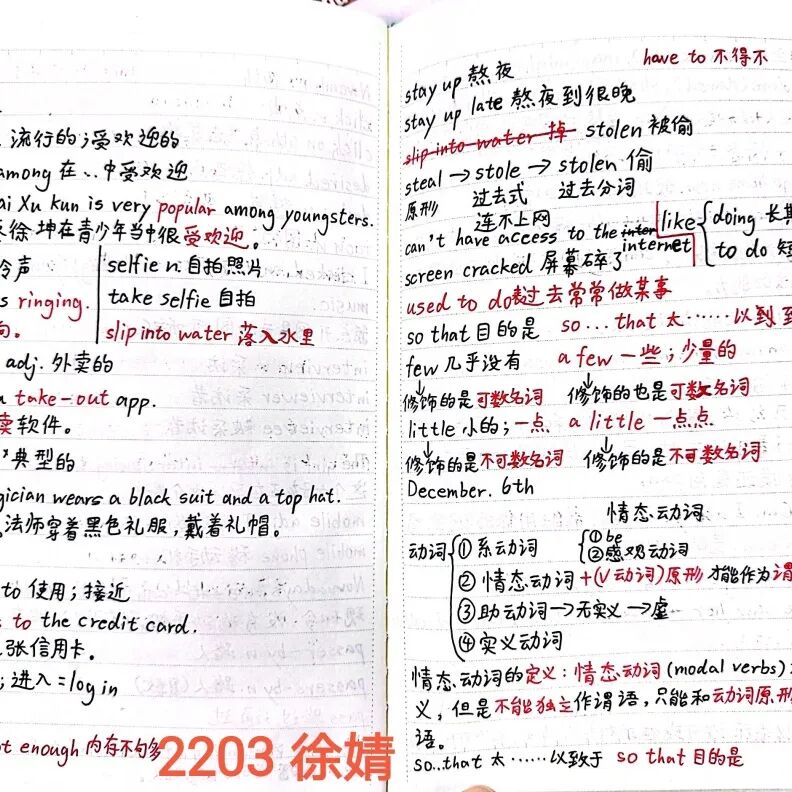 流行的;受欢迎的
among 在...中受欢迎
ai Xu kun is very popular among youngsters.
徐坤在青少年当中很受欢迎。
令声
s ringing.
向。
selfie n. 自拍照片
take selfie 自拍
slip into water 落入水里
adj. 外卖的
a take-out app.
卖软件。
典型的
gician wears a black suit and a top hat.
法师穿着黑色礼服,戴着礼帽。
to 使用;接近
s to the credit card.
张信用卡。
;进入=log in
ot enough 内存不句多
have to 不得不
stay up 熬夜
stay up late 熬夜到很晚
slip into water 掉 stolen 被偷
steal→stole→stolen 偷
原形 过去式 过去分词
连不上网
can't have access to the inter internet
like { doing 长期
to do 短
screen cracked 屏幕碎了
used to do表过去常常做某事
so that 目的是 so...that 太......以到
few 几乎没有 a few 一些;少量的
修饰的是可数名词 修饰的也是可数名词
little 小的;一点 a little 一点点
修饰的是不可数名词 修饰的是不可数名词
December. 6th
情态动词
动词 { ①系动词 { ①be
②感观动词
②情态动词+(V动词)原形 才能作为谓
③助动词→无实义→虚
④实义动词
情态动词的定义:情态动词(modal verbs)
义,但是不能独立作谓语,只能和动词原形
语。
so..that 太......以致于 so that 目的是
2203 徐婧